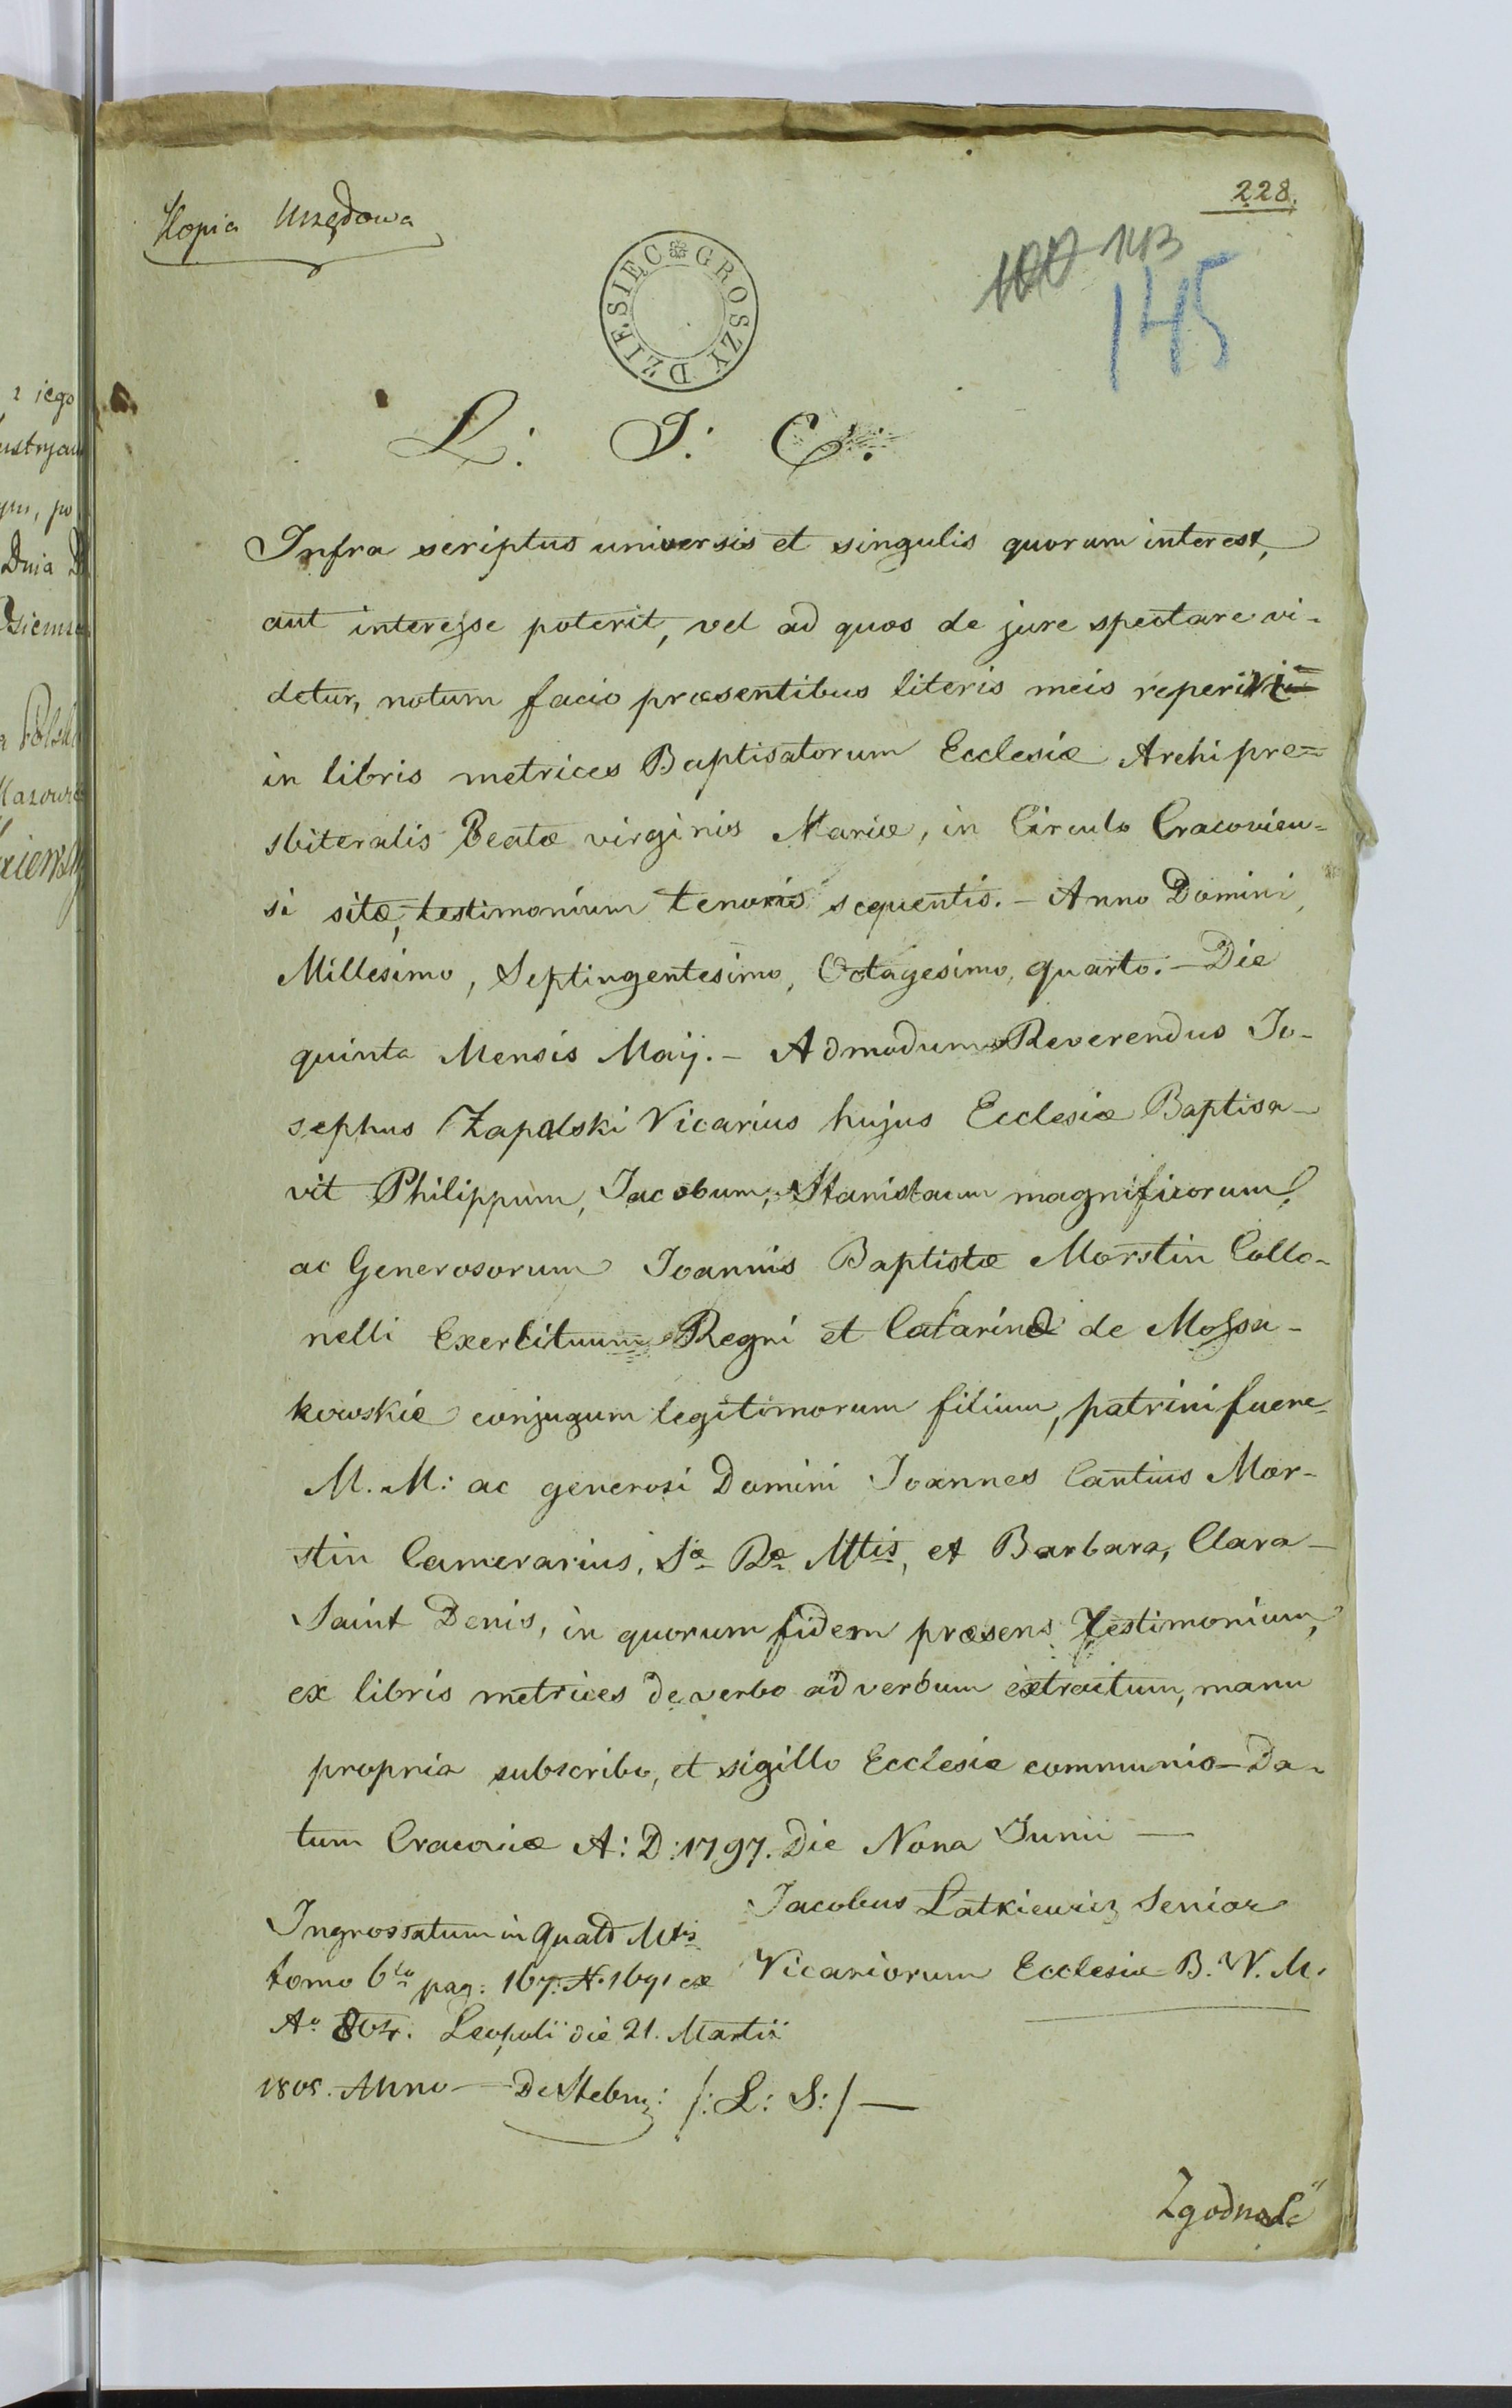 228.
Kopia Urzędowa
100 143
145
DZIESIĘC GROSZY
L: J: C:
Infra scriptus universis et singulis quorum interest,
aut interesse poterit, vel ad quos de jure spectare vi-
detur, notum facio præsentibus literis meis reperivi
in libris metrices Baptisatorum Ecclesiæ Archipre=
sbiteralis Beatæ virginis Mariæ, in Circulo Cracovien-
si sitæ, testimonium tenoris sequentis. - Anno Domini,
Millesimo, Septingentesimo, Octagesimo, quarto. - Die
quinta Mensis Maij. - Admodum Reverendus Jo-
sephus Zapalski Vicarius hujus Ecclesiæ Baptisa-
vit Philippum, Jacobum, Stanislaum magnificorum,
ac Generosorum Joannis Baptistæ Morstin Collo-
nelli Exercituum Regni et Catarinæ de Mossa-
kowskie conjugum legitimorum filium, patrini fuere
M. M: ac generosi Domini Joannes Cantius Mor-
stin Camerarius, Sæ Ræ Mttis, et Barbara, Clara -
Saint Denis, in quorum fidem præsens Testimonium,
ex libris metrices de verbo ad verbum extractum, manu
propria subscribo, et sigillo Ecclesiæ communio - Da-
tum Cracoviæ A: D: 1797. Die Nona Junii —
Jacobus Latkiewicz Senior
Vicariorum Ecclesiæ B. V. M.
Ingrossatum in Mtis
tomo 6to pag: 167. N. 1691 ex
Ao 804. Leopoli die 21. Martii
1805. Anno — /: L: S: / —
Zgodność